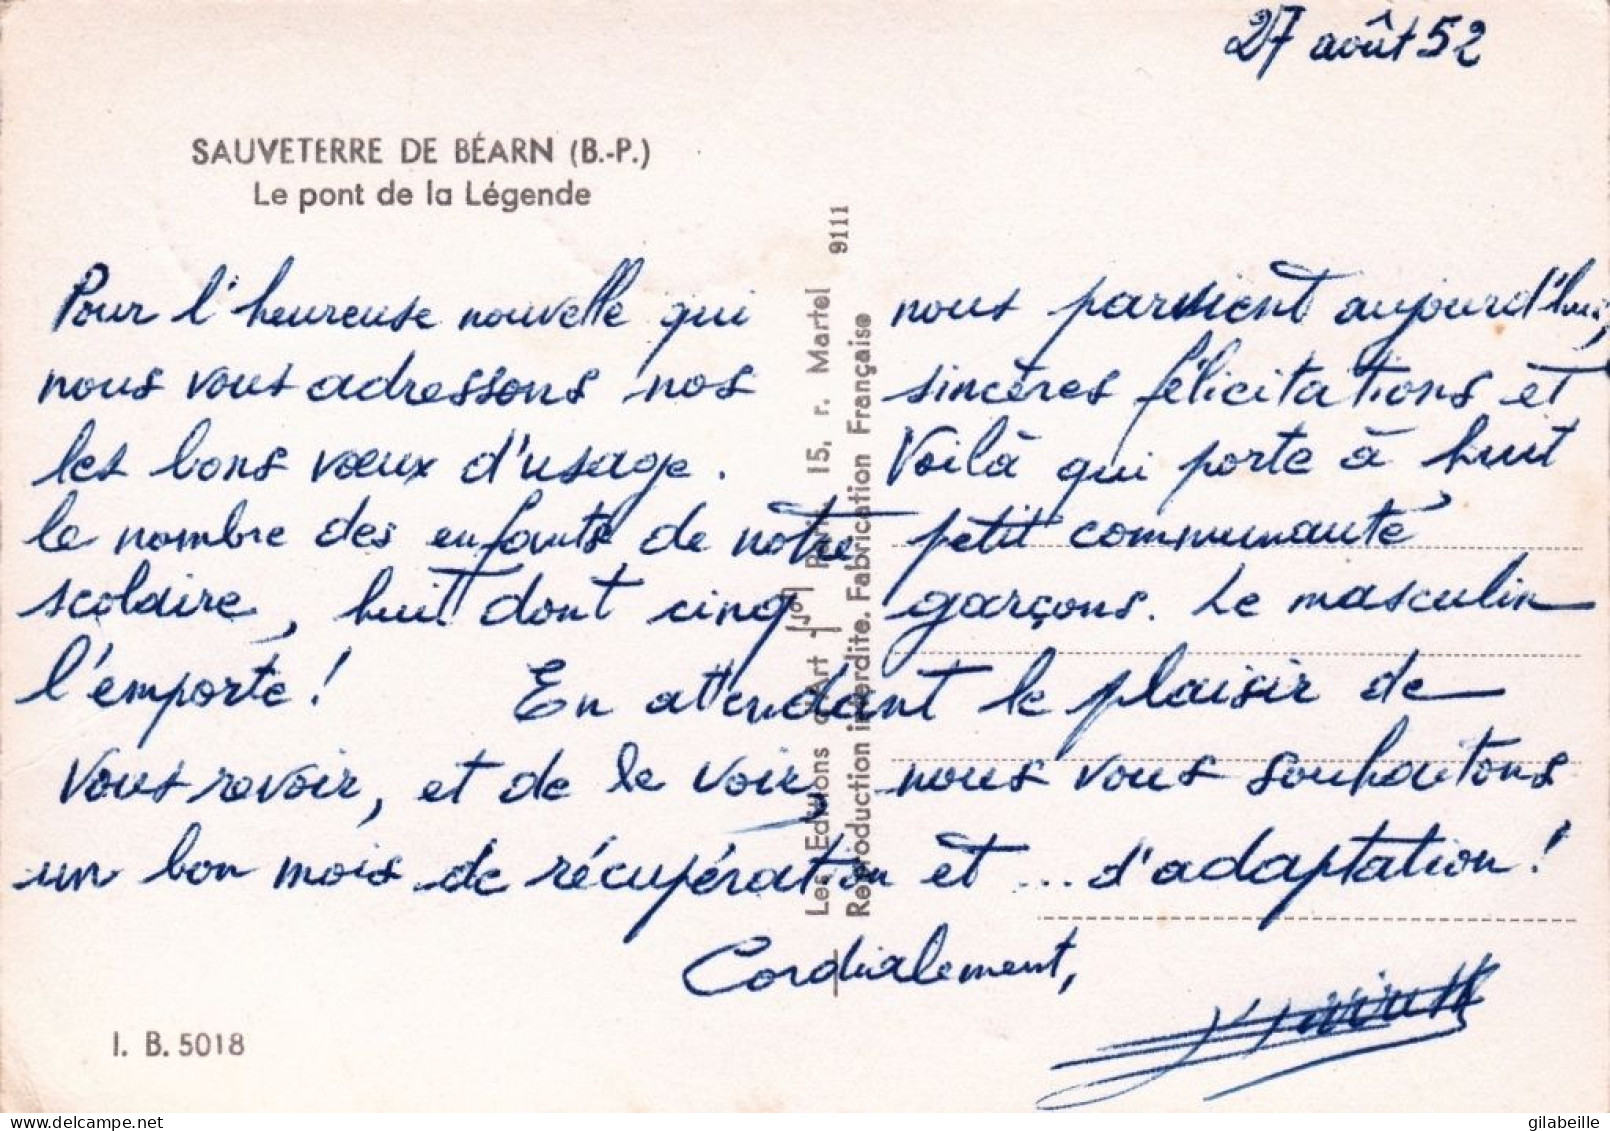 27 août 52
SAUVETERRE DE BÉARN (B.-P.)
Le pont de la Légende
Pour l'heureuse nouvelle qui nous parvient aujourd'hui,
nous vous adressons nos sincères félicitations et
les bons vœux d'usage. Voilà qui porte à huit
le nombre des enfants de notre petit communauté
scolaire, huit dont cinq garçons. Le masculin
l'emporte! En attendant le plaisir de
vous revoir, et de le voir, nous vous souhaitons
un bon mois de récupération et ... d'adaptation!
Cordialement,
I. B. 5018
Les Editions d'Art Paris, 15, r. Martel 9111
Reproduction interdite. Fabrication Française
gilabeille
www.delcampe.net